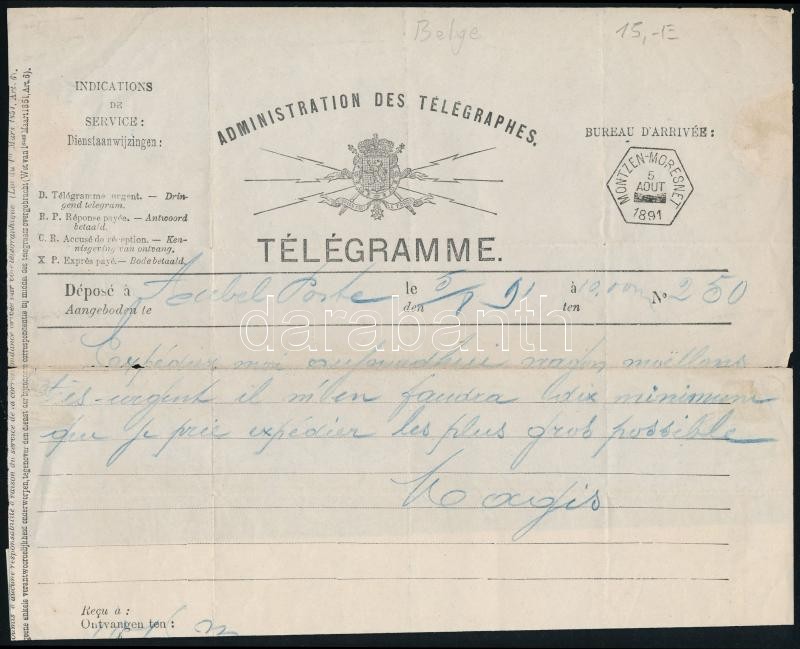 Belge 15,-E
INDICATIONS
DE
SERVICE :
Dienstaanwijzingen :
ADMINISTRATION DES TÉLÉGRAPHES.
BUREAU D'ARRIVÉE :
MONTZEN-MORESNET
5
AOUT
1891
D. Télégramme urgent. — Drin-
gend telegram.
R. P. Réponse payée. — Antwoord
betaald.
C. R. Accusé de réception. — Ken-
nisgeving van ontvang.
X P. Exprès payé. — Bode betaald.
TÉLÉGRAMME.
Déposé à Aubel Poste le 5/8 91 à N° 250
Aangeboden te den ten
Expédier moi aujourdhui wagon moëllons
très-urgent il m'en faudra dix minimum
que je prie expédier les plus gros possible
Magis
Reçu à :
Ontvangen ten :
darabanth.com